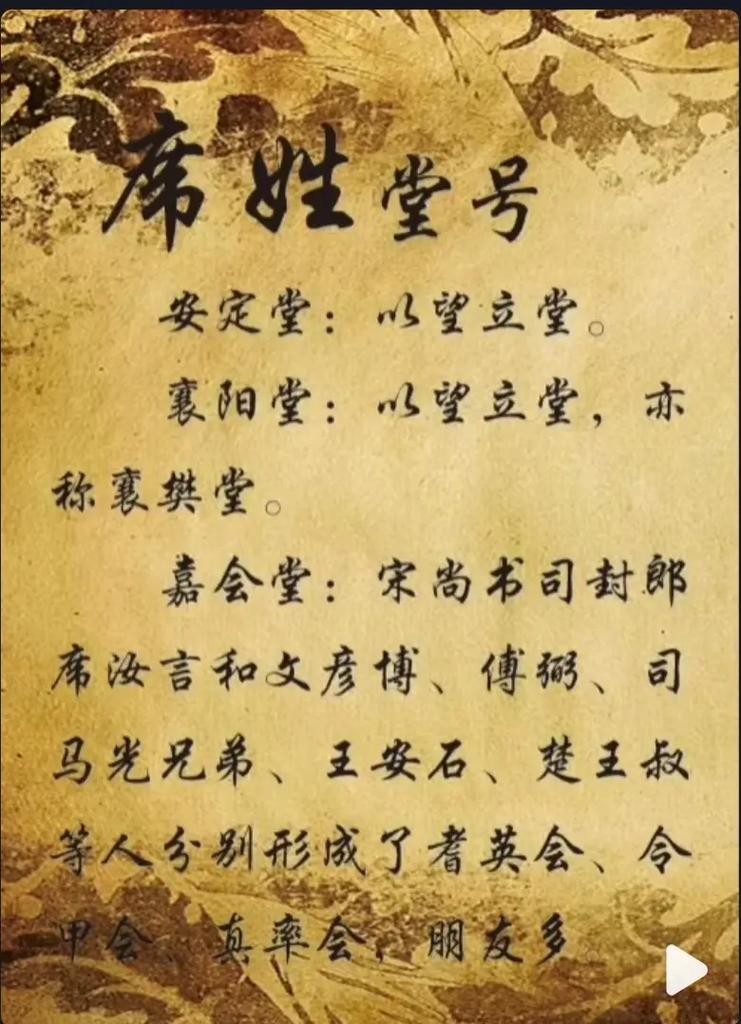 席姓堂号
安定堂：以望立堂。
襄阳堂：以望立堂，亦
称襄樊堂。
嘉会堂：宋尚书司封郎
席汝言和文彦博、傅弼、司
马光兄弟、王安石、楚王叔
等人分别形成了耆英会、令
甲会、真率会，朋友多